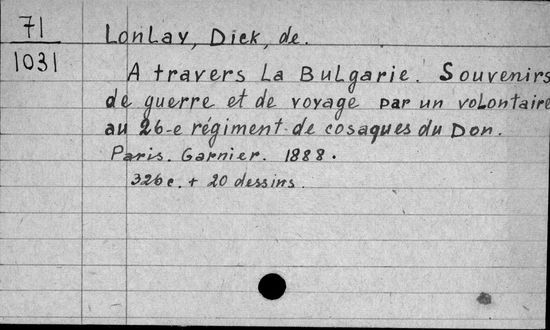 71
1031
Lonlay, Dick, de.
A travers La Bulgarie. Souvenirs
de guerre et de voyage par un volontaire
au 26-e régiment de cosaques du Don.
Paris. Garnier. 1888.
326 c. + 20 dessins.